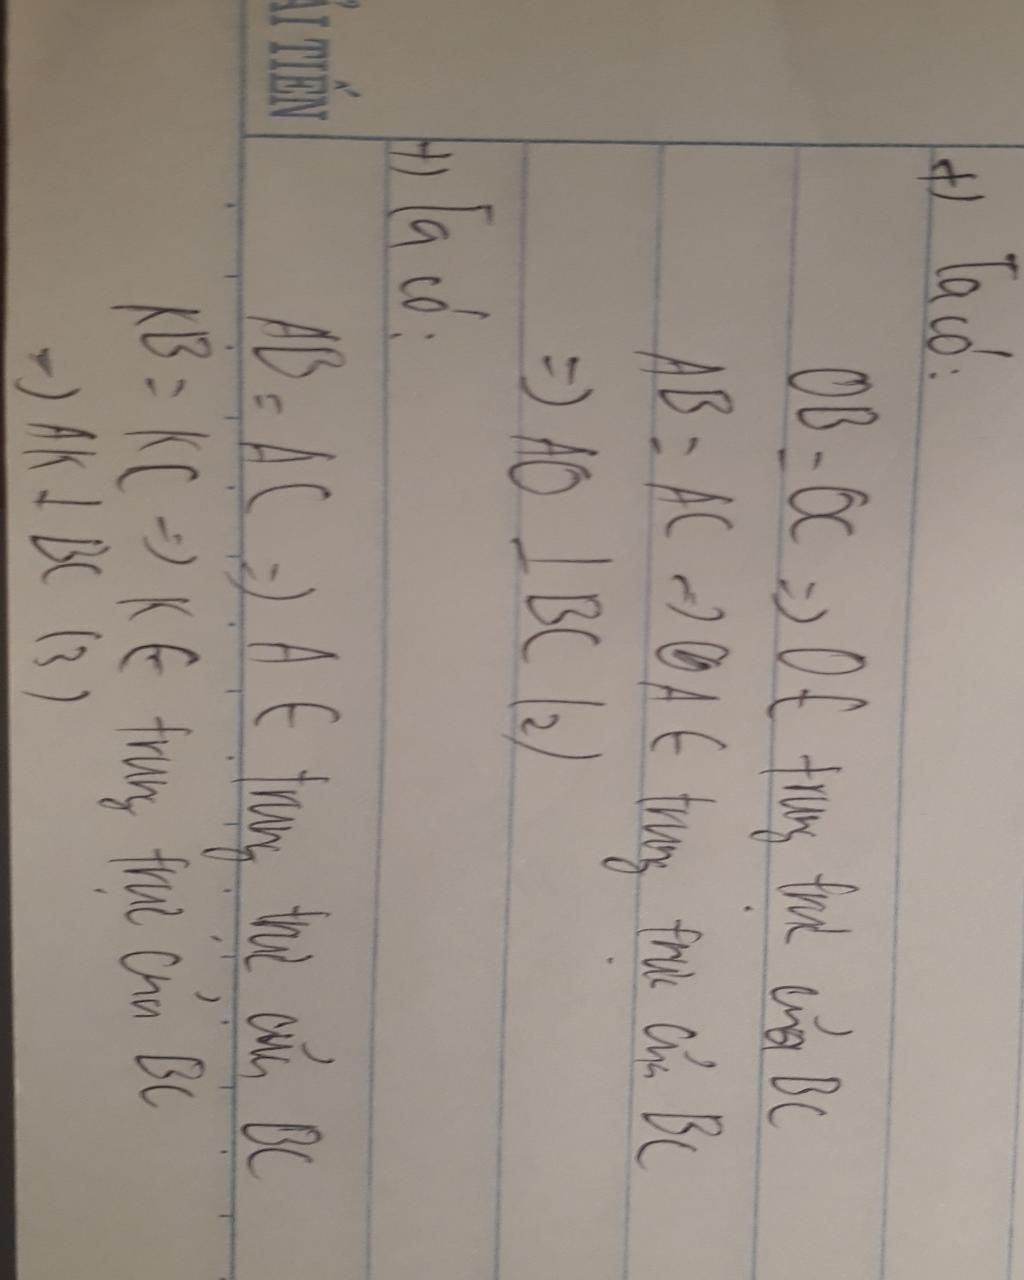 +) Ta có:
OB = OC => O ∈ trung trực của BC
AB = AC => A ∈ trung trực của BC
=> AO ⊥ BC (2)
+) Ta có:
AB = AC => A ∈ trung trực của BC
KB = KC => K ∈ trung trực của BC
=> AK ⊥ BC (3)
ẢI TIẾN